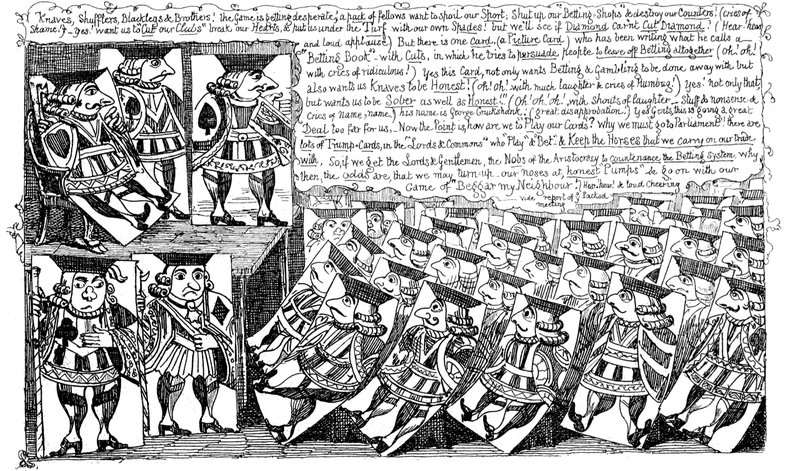 "Knaves, Shufflers, Blacklegs & Brothers! the Game is getting desperate, a pack of fellows want to spoil our Sport, Shut up our "Betting-Shops" & destroy our Counters! (cries of
Shame!) — Yes! want us to "Cut our Clubs" break our Hearts, & put us under the Turf with our own Spades! but we'll see if Diamond, can't Cut Diamond! (Hear! hear!
and loud applause) But there is one Card, (a Picture Card) who has been writing what he calls a
"Betting Book" — with Cuts, in which he tries to persuade people to leave off Betting altogether (Oh! oh!
with cries of ridiculous!) Yes this Card, not only wants Betting & Gambling to be done away with but
also wants us Knaves to be Honest! (Oh! oh! with much laughter & cries of Humbug!) yes! not only that,
but wants us to be Sober as well as Honest!! (Oh! oh! oh! with shouts of laughter — Stuff & nonsense &
cries of name, name,) his name is George Cruikshank! (great disapprobation.) Yes Gents, this is going a great
Deal too far for us, — Now the Point is, how are we to Play our Cards? Why we must go to Parliament! there are
lots of Trump-Cards, in the "Lords & Commons" who Play & Bet & Keep the Horses that we carry on our trade
with. So, if we get the Lords & Gentlemen, the Nobs of the Aristocracy to countenance the Betting System. why
then, the odds are, that we may turn-up our noses at, honest Pumps & go on with our
Game of "Beggar my Neighbour! [Hear, hear! & loud Cheering
vide report of a Packed
meeting